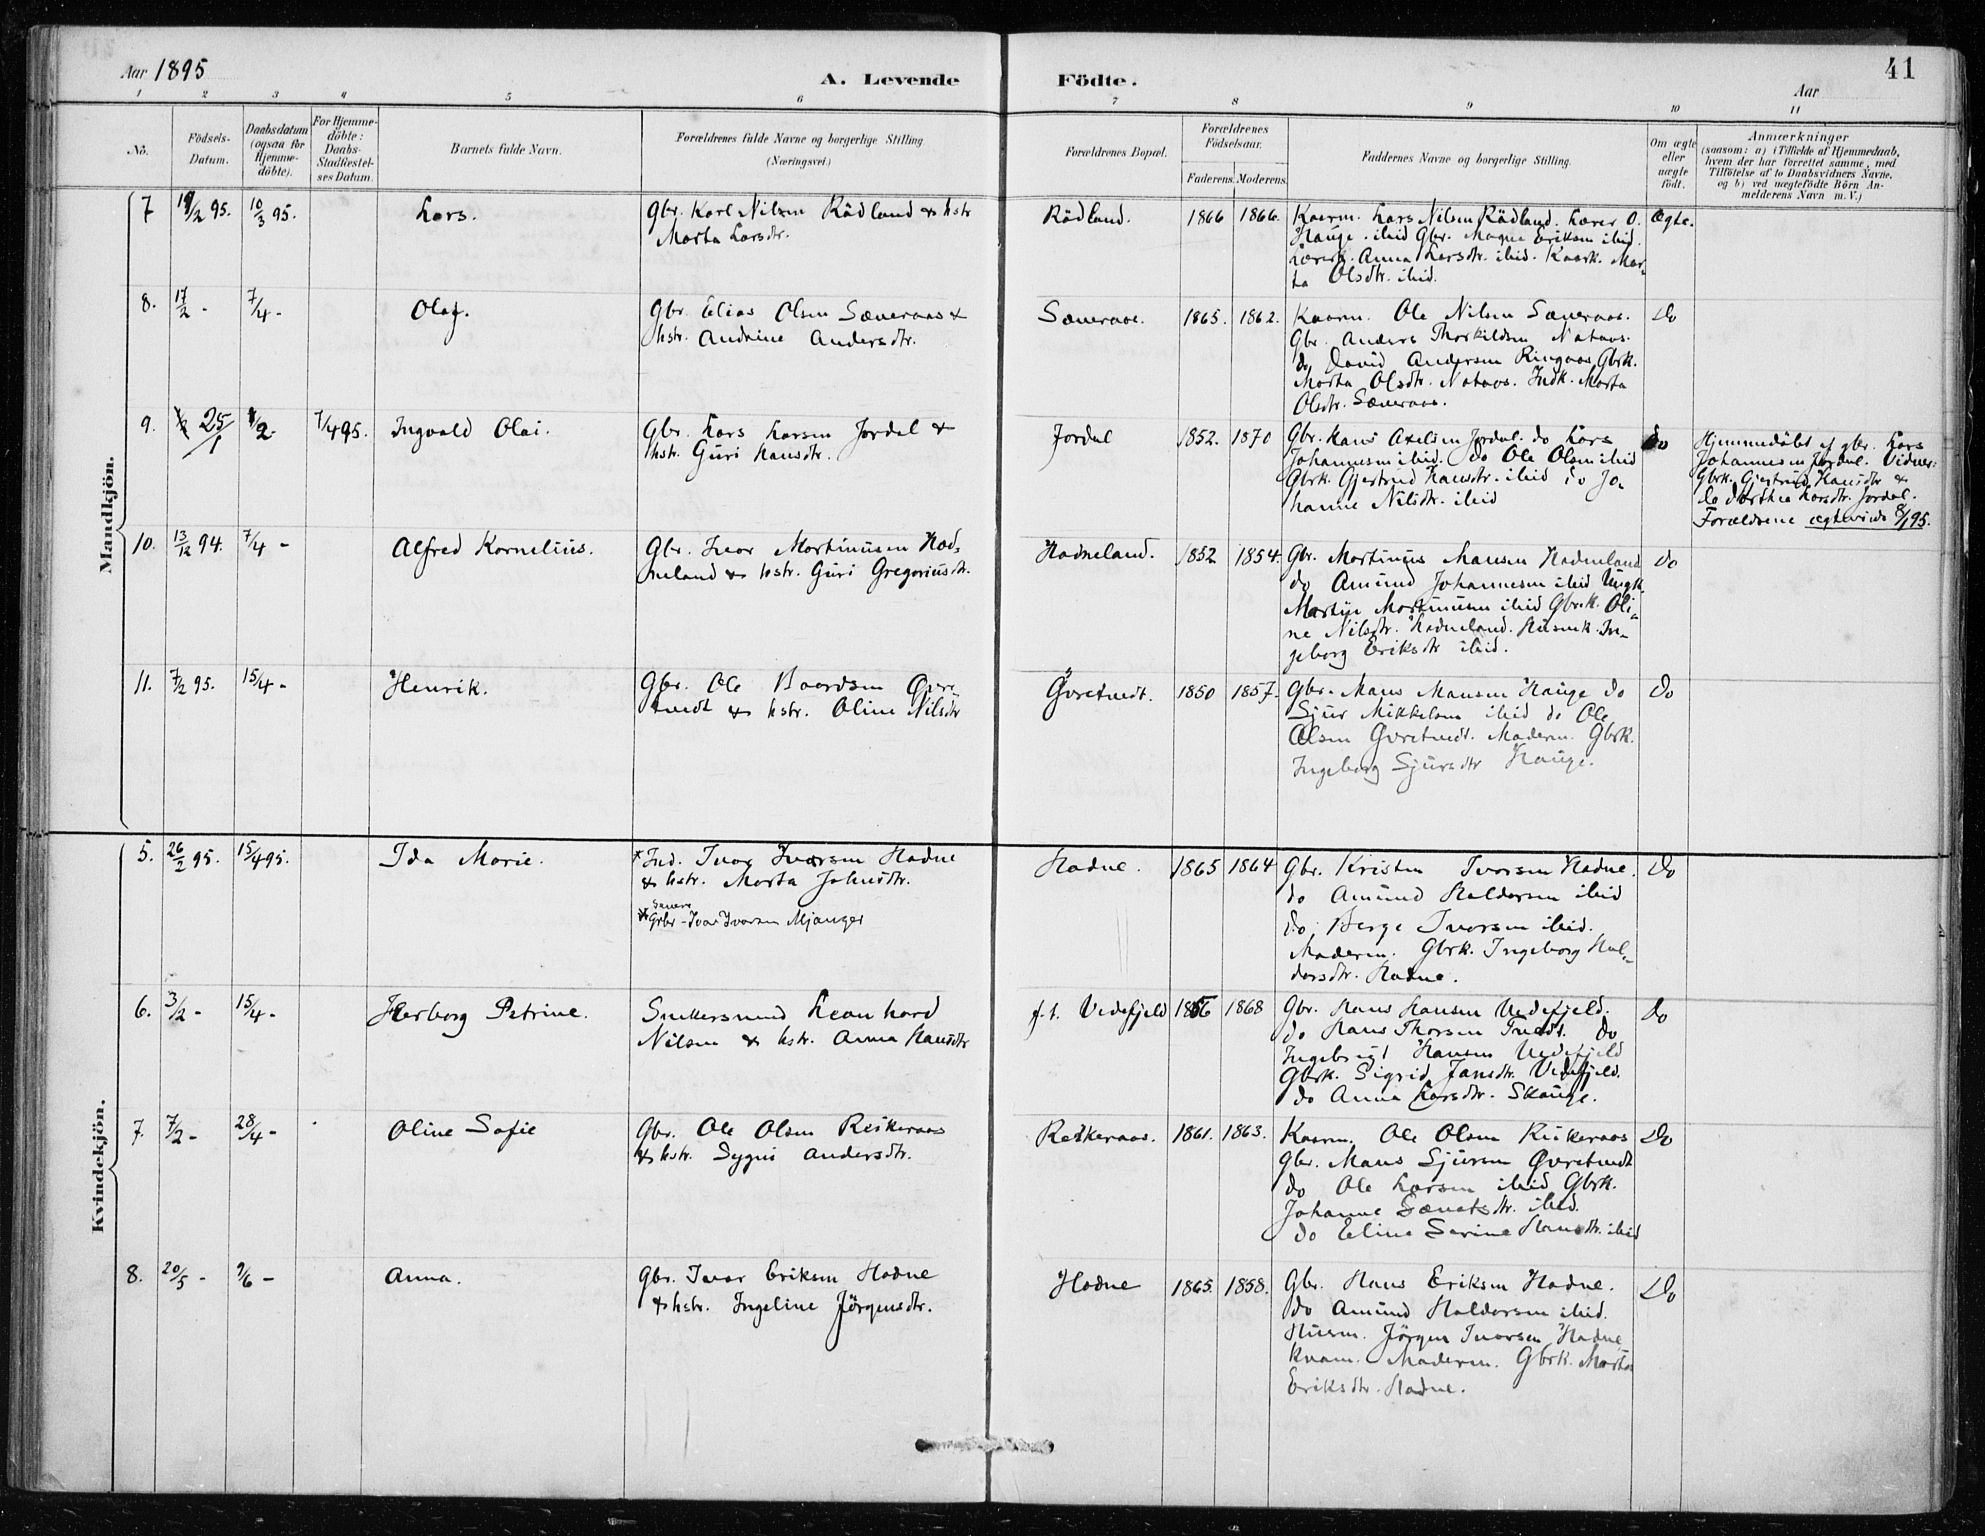 Aar 1895
A. Levende
Födte.
41
Aar
1 2 3 4 5 6 7 8 9 10 11
No.
Födsels-
Datum.
Daabsdatum
(ogsaa for
Hjemme-
döbte).
For Hjemme-
döbte:
Daabs-
Stadfæstel-
ses Datum.
Barnets fulde Navn.
Forældrenes fulde Navne og borgerlige Stilling
(Næringsvei.)
Forældrenes Bopæl.
Forældrenes
Födselsaar.
Faderens. Moderens.
Faddernes Navne og borgerlige Stilling.
Om ægte
eller
uægte
födt.
Anmærkninger
(saasom: a) i Tilfælde af Hjemmedaab,
hvem der har forrettet samme, med
Tilföielse af to Daabsvidners Navne,
og b) ved uægtefödte Börn An-
melderens Navn m. V.)
Mandkjön.
7 19/2 95. 10/3 95. Lars.
Gbr. Karl Nilsen Rödland & hstr
Marta Larsdtr.
Rödland. 1866 1866.
Kaarm. Lars Nilsen Rödland. Lærer O.
Hauge. ibid Gbr. Magne Eriksen ibid.
Lærerk. Anna Larsdtr. ibid. Kaark. Mar-
ta Olsdtr. ibid.
Ægte.
8. 17/2 - 7/4 - Olaf.
Gbr. Elias Olsen Sæveraas &
hstr. Andrine Andersdtr.
Sæveraas. 1865. 1862.
Kaarm. Ole Nilsen Sæveraas.
Gbr. Anders Thorkildsen Nataas.
do David Andersen Ringaas Gbrk.
Marta Olsdtr. Nataas. Indk. Marta
Olsdtr. Sæveraas.
Do
9. 25/1 1/2- 7/4 95. Ingvald Olai.
Gbr. Lars Larsen Jordal &
hstr. Guri Hansdtr.
Jordal 1852. 1870
Gbr. Hans Axelsen Jordal. do Lars
Johannesen ibid. do Ole Olsen ibid
Gbrk. Gjertrud Hansdtr. ibid do Jo-
hanne Nilsdtr. ibid
Do
Hjemmedöbt af gbr. Lars
Johannesen Jordal. Vidner:
Gbrk. Gjertrud Hansdtr &
do Dorthea Larsdtr. Jordal.
Forældrene ægteviede 8/1 95.
10. 13/12 94. 7/4 - Alfred Kornelius.
Gbr. Ivar Martinusen Had-
neland & hstr. Guri Gregoriusdtr.
Hadneland. 1852 1854.
Gbr. Martinus Hansen Hadneland
do Amund Johannesen ibid Ungk.
Martin Martinusen ibid Gbrk. Oli-
ne Nilsdtr. Hadneland. Husmk. In-
geborg Eriksdtr ibid.
Do
11. 7/2 95. 15/4 - Henrik.
Gbr. Ole Baardsen Övre-
tvedt & hstr. Oline Nilsdtr
Övretvedt. 1850 1857.
Gbr. Mans Mansen Hauge do
Sjur Mikkelsen ibid do Ole
Olsen Övretvedt. Moderen. Gbrk.
Ingeborg Sjursdtr Hauge.
Do
Kvindekjön.
5. 26/2 95. 15/4 95. Ida Marie.
* Ind. Ivar Ivarsen Hadne
& hstr. Marta Johnsdtr.
* senere
Grbr - Ivar Ivarsen Mjanger
Hadne. 1865 1864
Gbr. Kristen Ivarsen Hadne.
do Amund Haldorsen ibid
do Berge Ivarsen ibid.
Moderen. Gbrk. Ingeborg Hal-
dorsdtr. Hadne.
Do
6. 3/2 - 15/4 - Herborg Petrine.
Snekersvend Leonhard
Nilsen & hstr. Anna Hansdtr
f.t. Vedefjeld 1866 1868
Gbr. Hans Hansen Vedefjeld.
do Hans Thorsen Tvedt. do
Ingebrigt Hansen Vedefjeld
Gbrk. Sigrid Jansdtr. Vedefjeld.
do Anna Larsdtr. Skauge.
Do
7. 7/2 - 28/4 - Oline Sofie
Gbr. Ole Olsen Reikeraas
& hstr. Sygni Andersdtr.
Reikeraas. 1861. 1863.
Kaarm. Ole Olsen Reikeraas
Gbr. Mans Sjursen Övretvedt
do Ole Larsen ibid Gbrk.
Johanne Larsdtr. ibid.
do Eline Serine Hansdtr. ibid
Do
8. 20/5 - 9/6 - Anna.
Gbr. Ivar Eriksen Hadne
& hstr. Ingeline Jörgensdtr.
Hadne 1865. 1858.
Gbr. Hans Eriksen Hadne.
do Amund Haldorsen ibid.
Husm. Jörgen Ivarsen Hadne
kvam. Moderen. Gbrk. Marta
Eriksdtr. Hadne.
Do